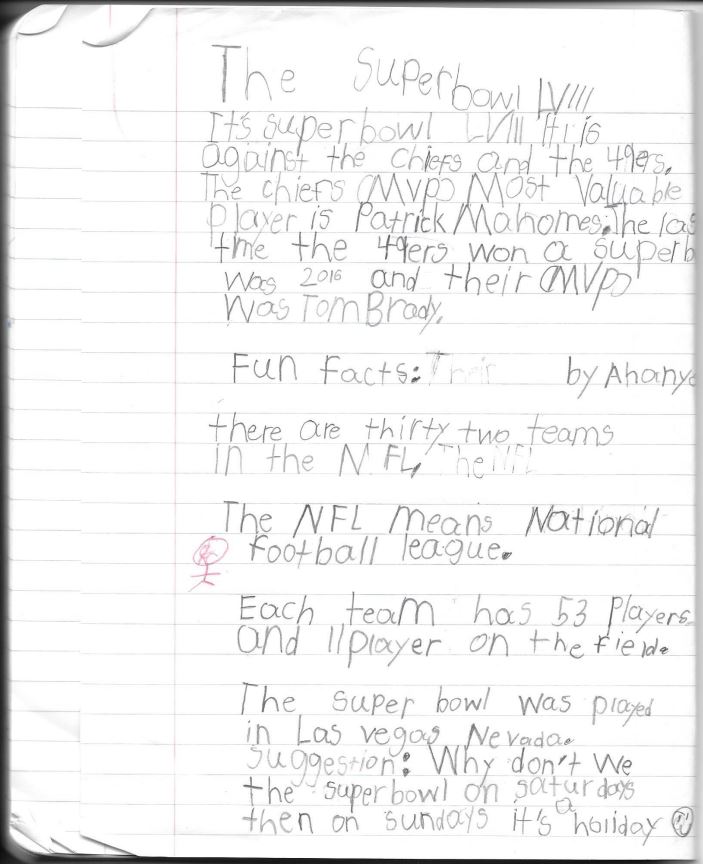 The Superbowl LVIII
It's superbowl LVIII It is
against the chiefs and the 49ers.
The chiefs (MVP) Most Valuable
Player is Patrick Mahomes. The las
time the 49ers won a superb
was 2016 and their (MVP)
Was Tom Brady.
Fun facts: Their by Ahanya
there are thirty two teams
in the NFL, The NFL
The NFL means National
football league.
Each team has 53 Players
and 11 player on the field.
The super bowl was played
in Las vegas Nevada.
Suggestion: Why don't we
the superbowl on saturdays
then on sundays it's a holiday